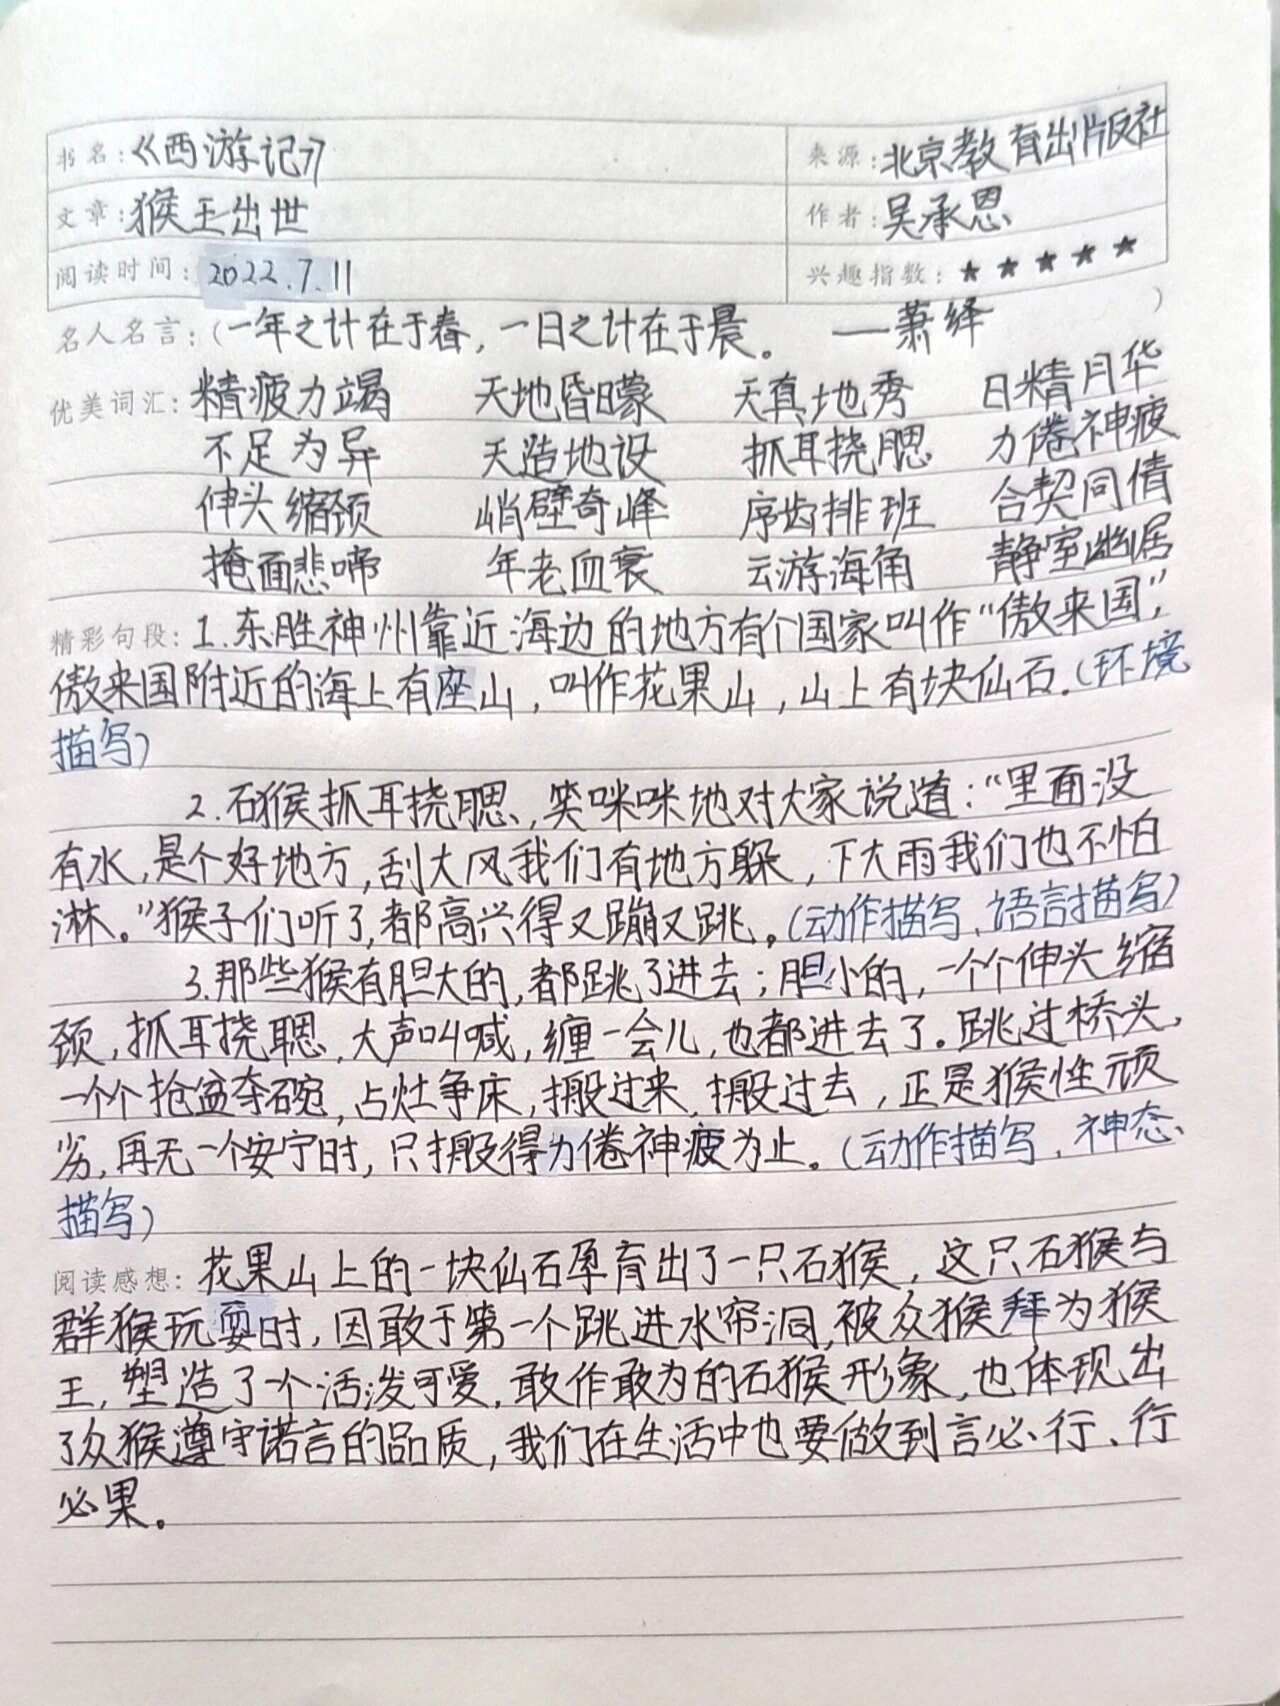 书名：《西游记》
来源：北京教育出版社
文章：猴王出世
作者：吴承恩
阅读时间：2022.7.11
兴趣指数：★★★★★
名人名言：(一年之计在于春，一日之计在于晨。 ——萧绎 )
优美词汇：精疲力竭 天地昏曚 天真地秀 日精月华
不足为异 天造地设 抓耳挠腮 力倦神疲
伸头缩颈 峭壁奇峰 序齿排班 合契同情
掩面悲啼 年老血衰 云游海角 静室幽居
精彩句段：1.东胜神州靠近海边的地方有个国家叫作“傲来国”，
傲来国附近的海上有座山，叫作花果山，山上有块仙石。(环境
描写)
2.石猴抓耳挠腮，笑咪咪地对大家说道：“里面没
有水，是个好地方，刮大风我们有地方躲，下大雨我们也不怕
淋。”猴子们听了，都高兴得又蹦又跳。(动作描写、语言描写)
3.那些猴有胆大的，都跳了进去；胆小的，一个个伸头缩
颈，抓耳挠聪，大声叫喊，缠一会儿，也都进去了。跳过桥头，
一个个抢盆夺碗，占灶争床，搬过来，搬过去，正是猴性顽
劣，再无一个安宁时，只搬得力倦神疲为止。(动作描写、神态
描写)
阅读感想：花果山上的一块仙石孕育出了一只石猴，这只石猴与
群猴玩耍时，因敢于第一个跳进水帘洞，被众猴拜为猴
王，塑造了一个活泼可爱，敢作敢为的石猴形象，也体现出
了众猴遵守诺言的品质，我们在生活中也要做到言必行、行
必果。